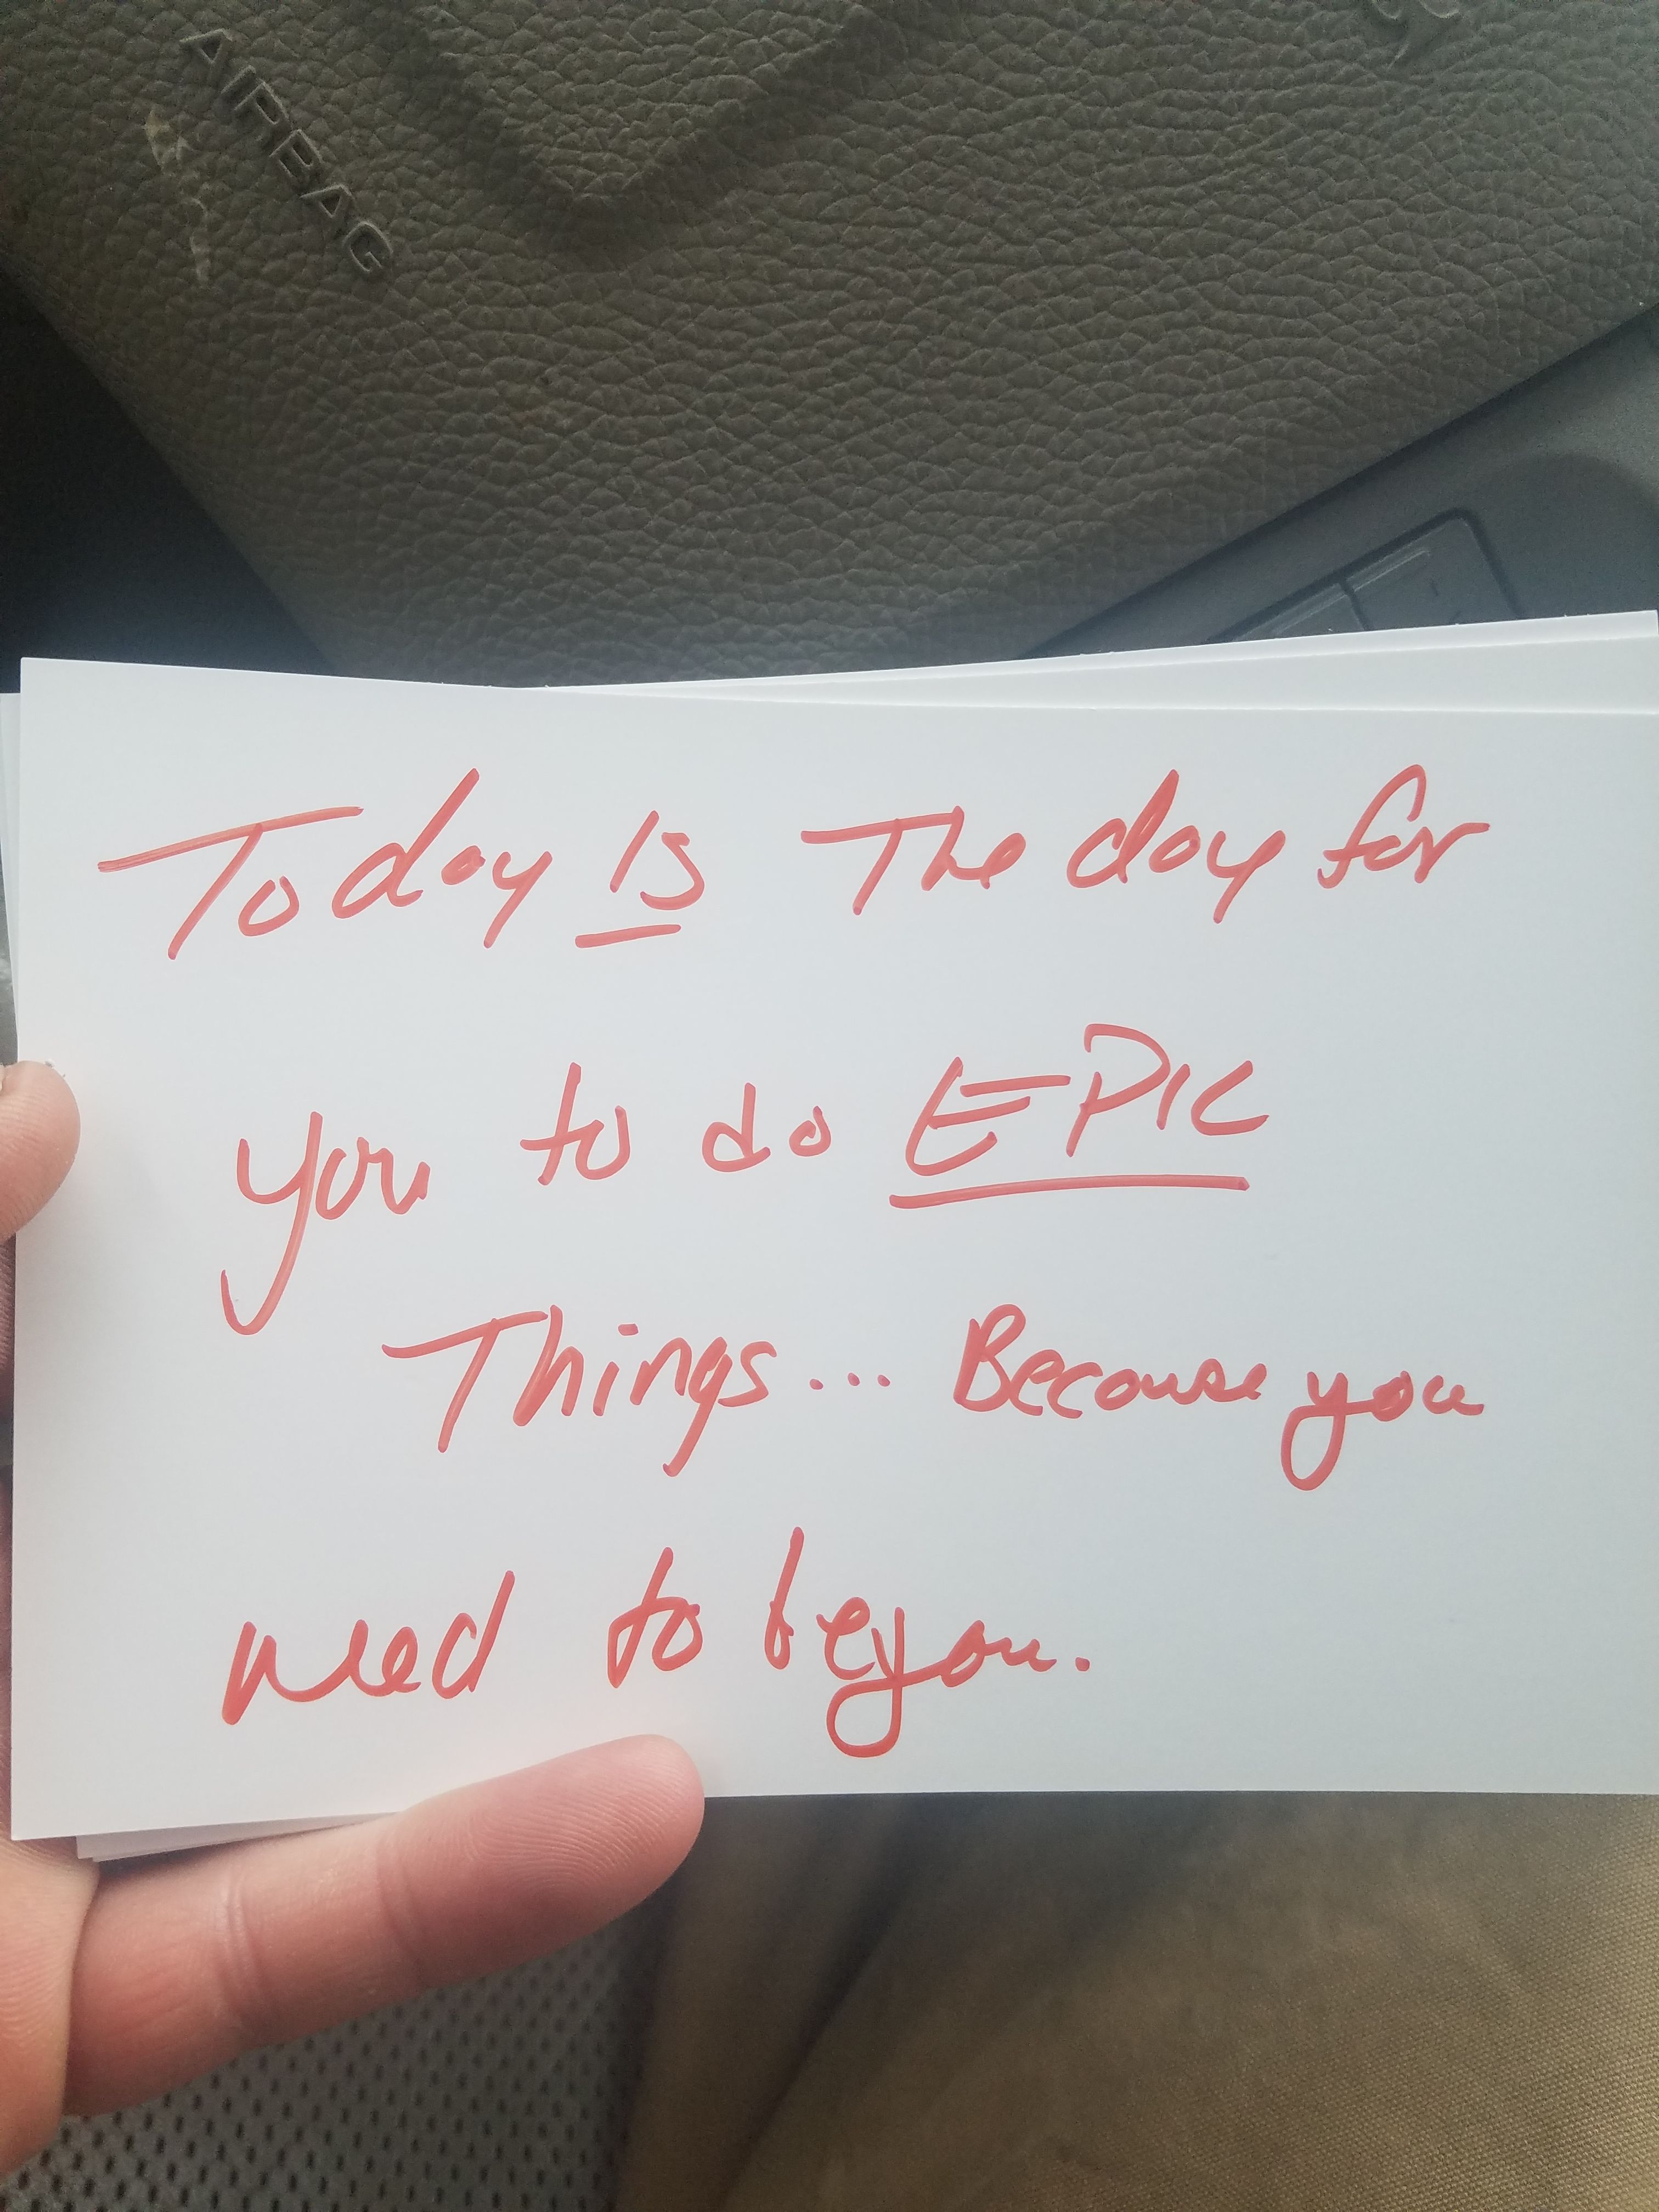 AIRBAG
Today Is The day for
you to do EPIC
Things... Because you
need to be you.